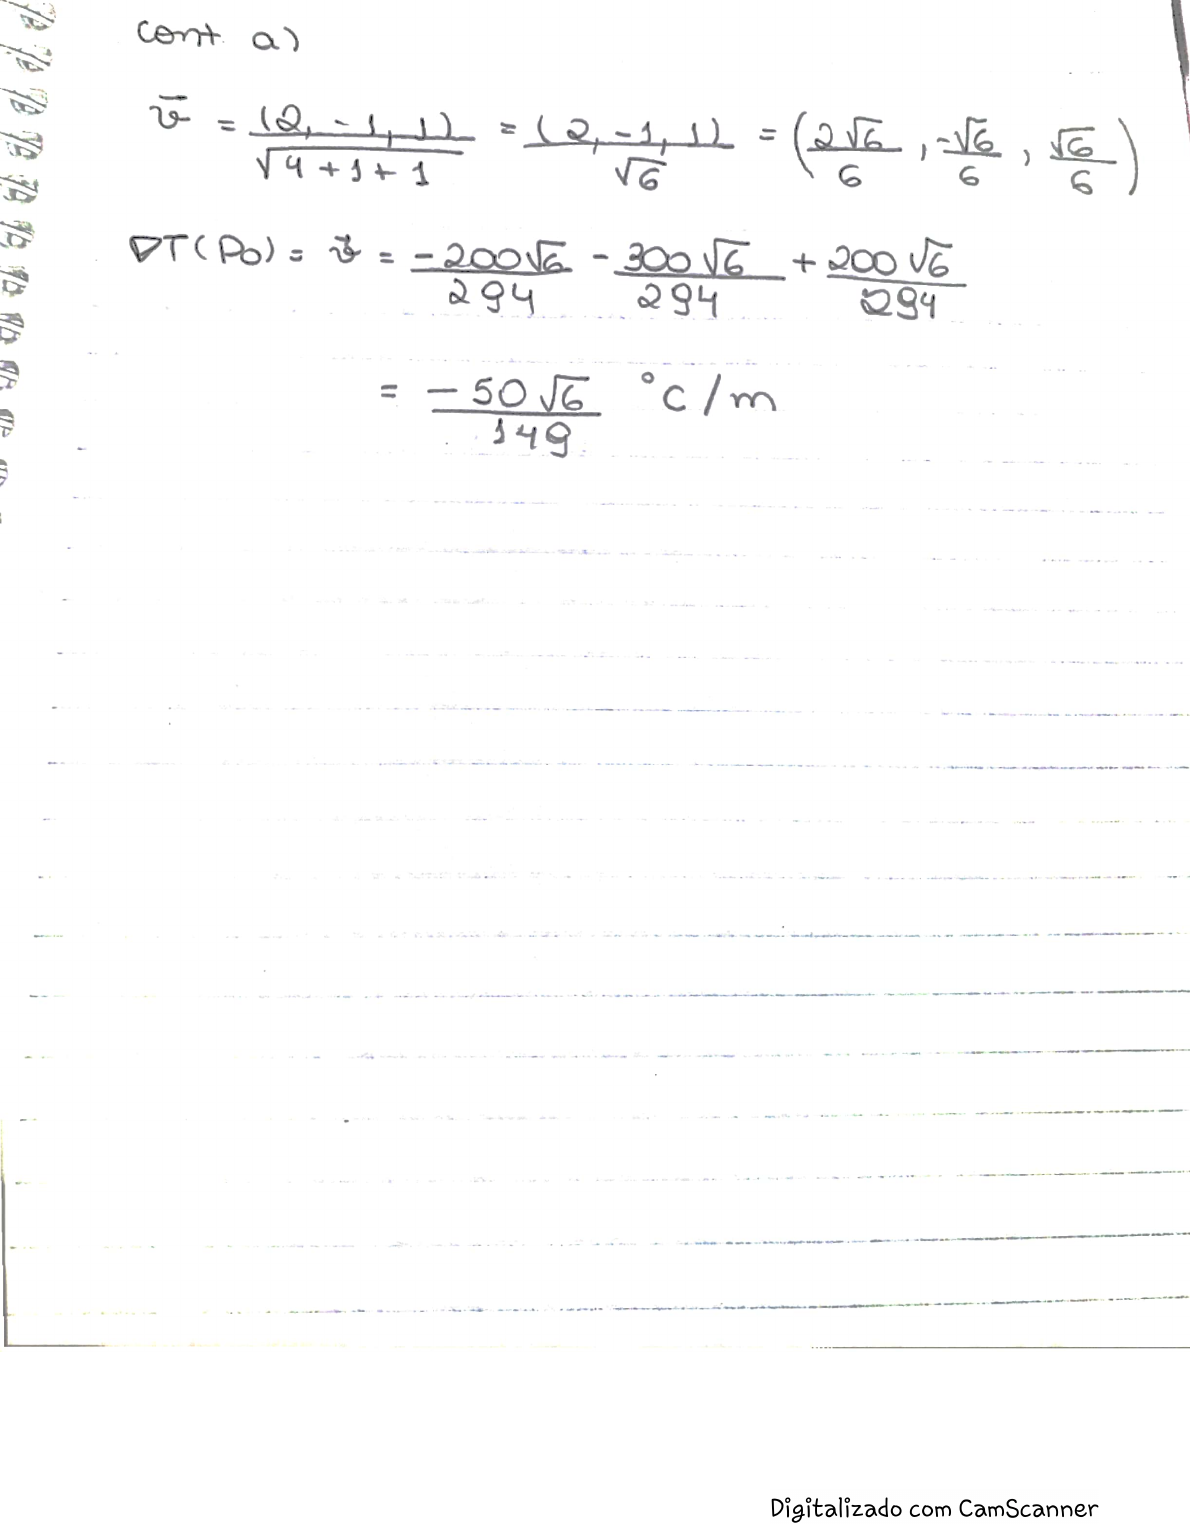 cont. a)
v̄ = (2, -1, 1) / √(4+1+1) = (2, -1, 1) / √6 = (2√6/6, -√6/6, √6/6)
∇T(Po) = v⃗ = -200√6/294 - 300√6/294 + 200√6/294
= -50√6/149 °C/m
Digitalizado com CamScanner